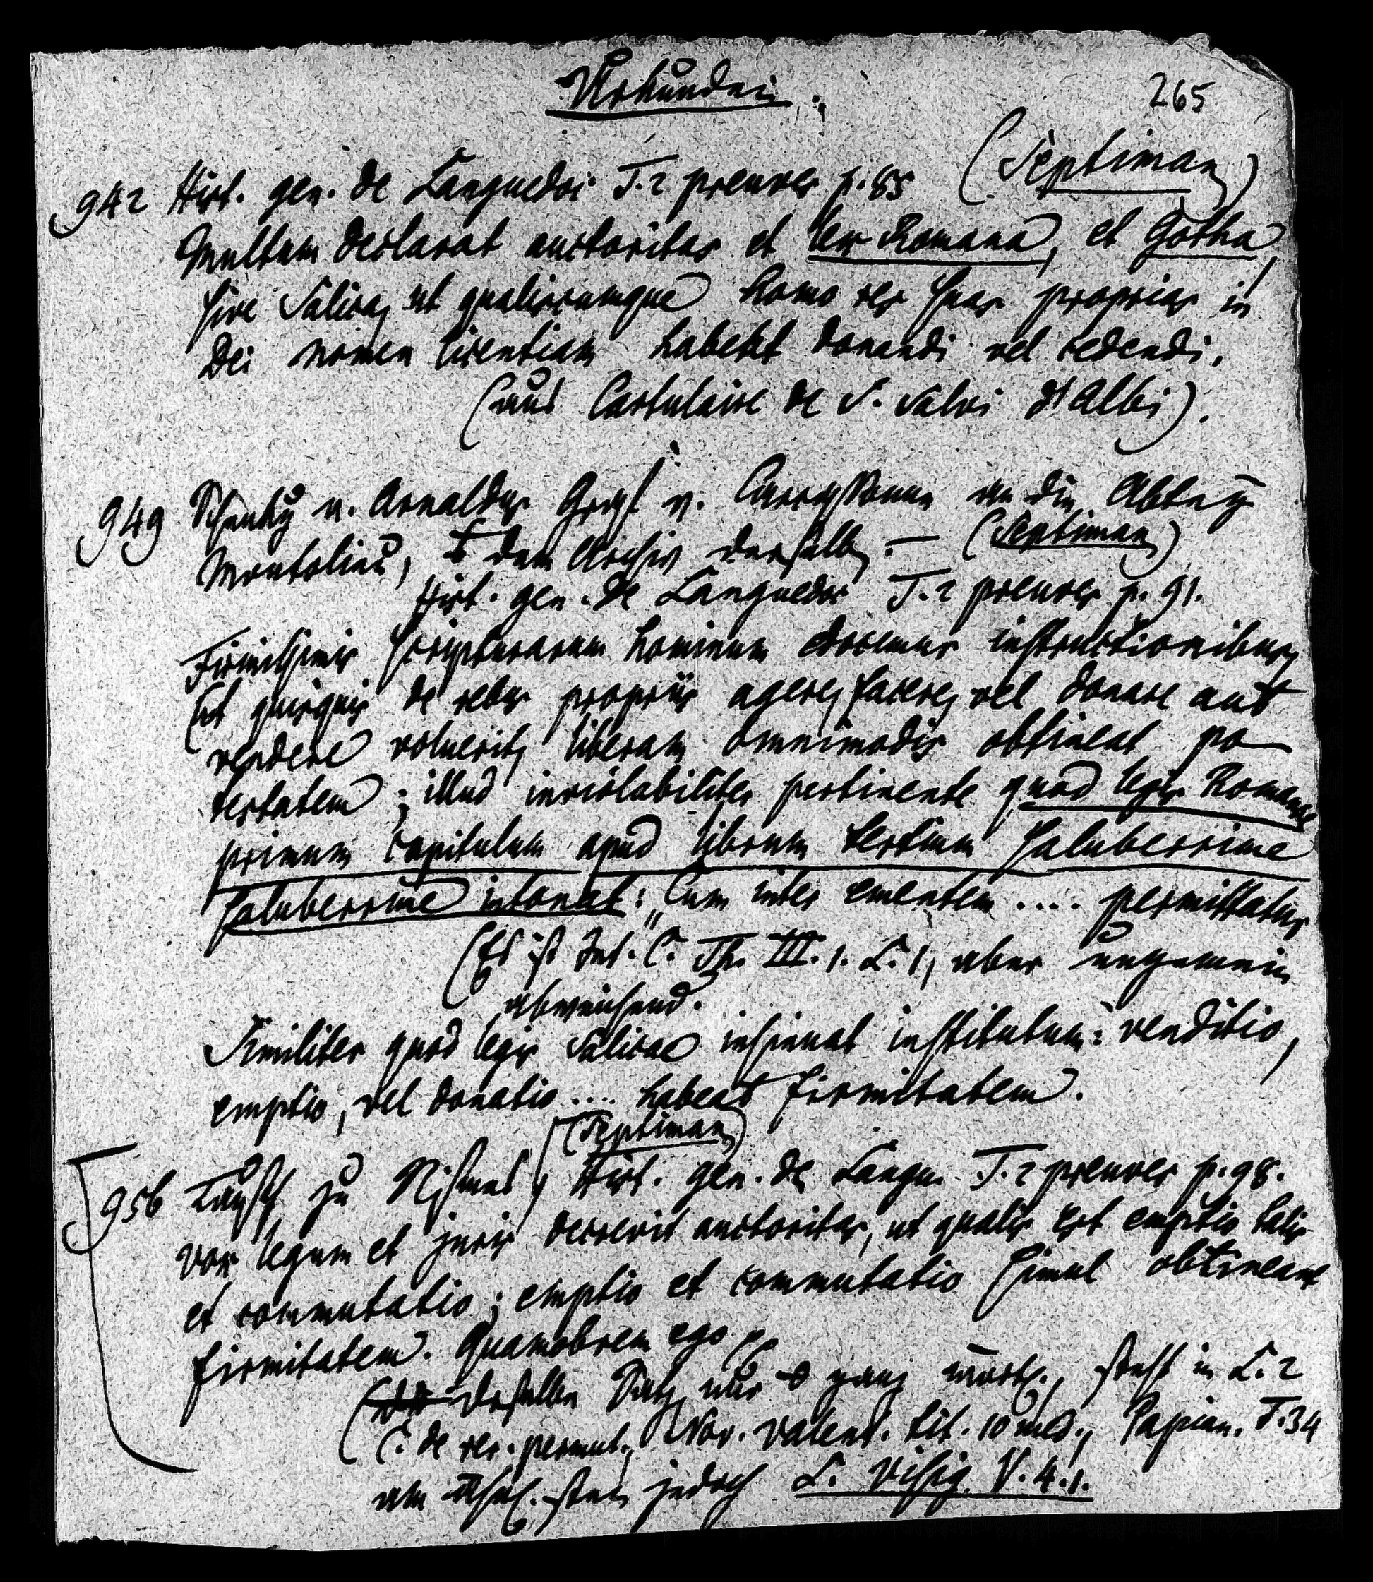 Urkunden.
265
(Septiman)
942 Hist. gen. de Languedoc T. 2 preuves p. 85
Multum declarat auctoritas et lex Romana, et Gotha,
sive Salica, ut qualiscumque homo res suas proprias in
Dei nomen licentiam habebit donandi vel cedendi.
(aus Cartulaire de S. Salvi d'Albi).
949 Schenkg v. Arnaldus Graf v. Carcassonne an die Abtey
Montolieu, dem Archiv derselb. — (Septiman)
Hist. gen. de Languedoc T. 2 preuves p. 91.
Firmissimis scripturarum hominum docemur instructionibus,
Ut quisquis de rebus propriis agere, facere, vel donare aut
vendere voluerit, liberam omnimodis obtineat po
testatem; illud inviolabiliter pertinente quod legis Romanae
primum capitulum apud librum tertium saluberrime
saluberrime intonat: "Cum inter ementem .... permittatur
(Es ist Int. C. Th. III. 1. L. 1, aber ungemein
abweichend.
Similiter quod legis Salicae insinuat institutum: venditio,
emptio, vel donatio .... habeat firmitatem.
(Septiman)
956 Tausch zu Nismes, Hist. gen. de Langu. T. 2 preuves p. 98.
vox legum et juris decrevit auctoritas, ut qualis est emptio talis
et commutatio; emptio et commutatio simul obtineant
firmitatem. Quamobrem ego
(derselbe Satz, nur ganz wörtl., steht in L. 2
C. de rer. permut., Nov. Valent. tit. 10 Papian. T. 34
am ähnl.sten jedoch L. Visig. V. 4. 1.